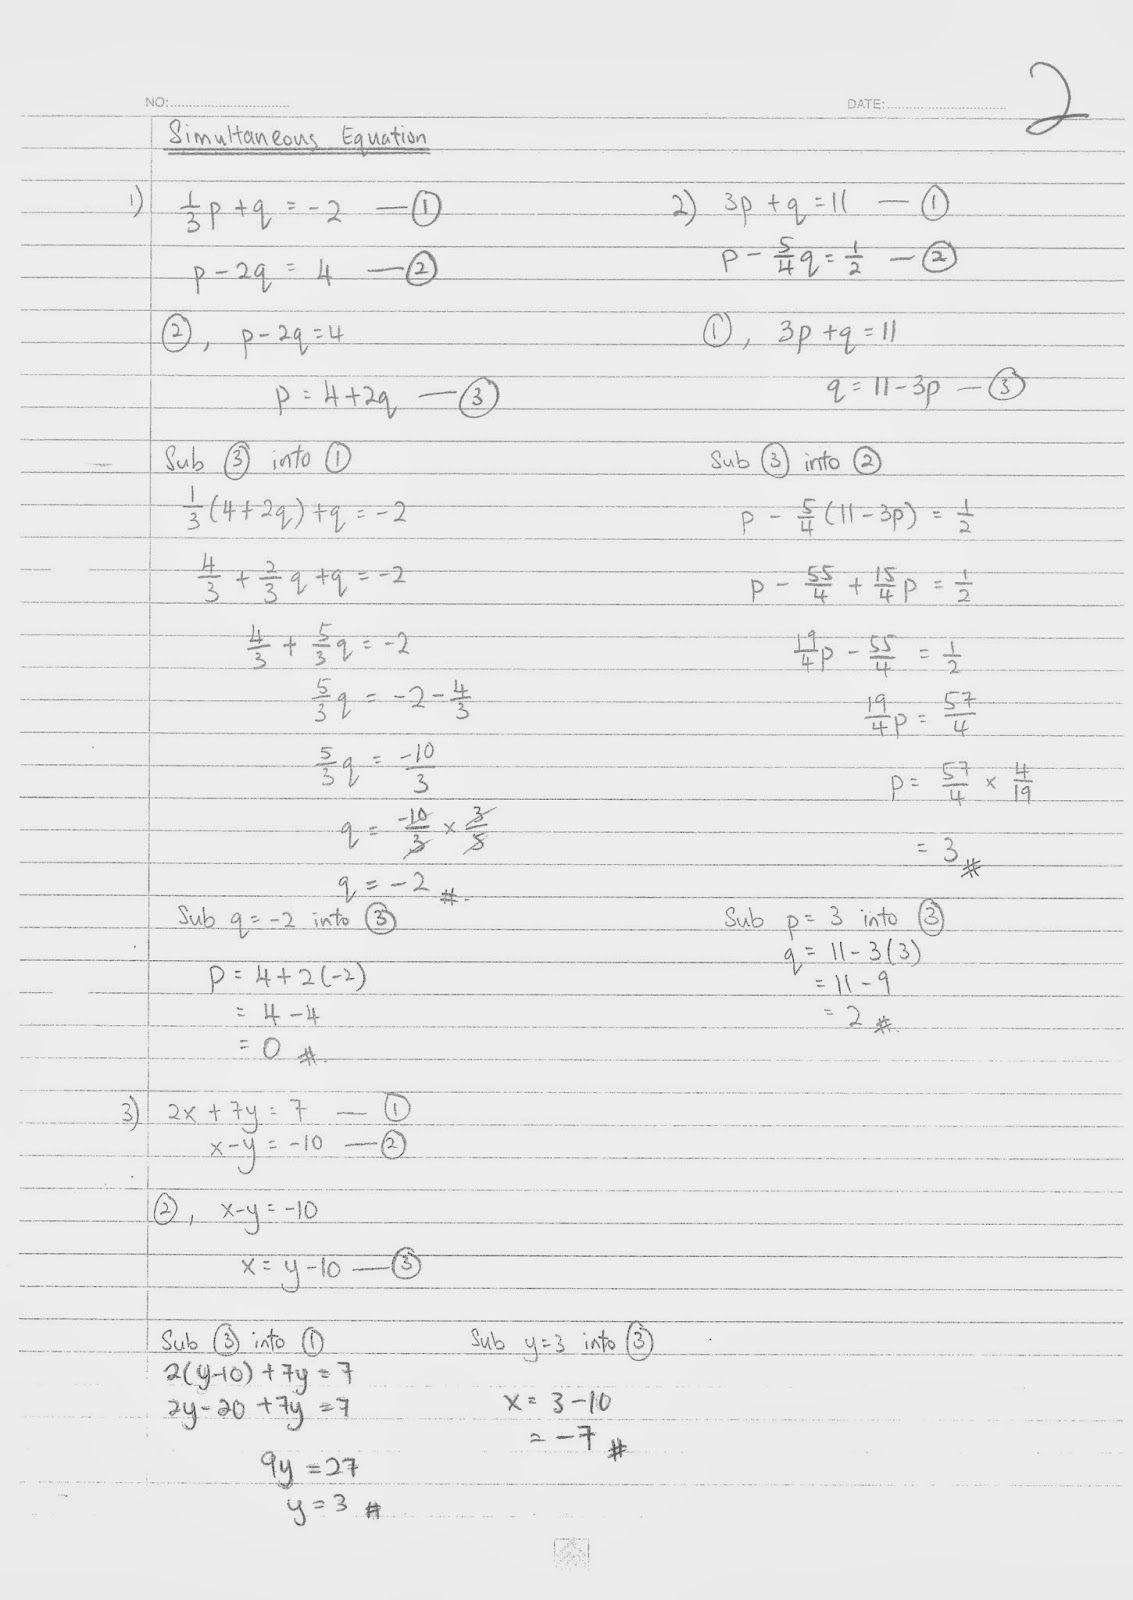 NO:
DATE:
2
Simultaneous Equation
1) 1/3 p + q = -2 — ①
p - 2q = 4 — ②
②, p - 2q = 4
p = 4 + 2q — ③
Sub ③ into ①
1/3 (4 + 2q) + q = -2
4/3 + 2/3 q + q = -2
4/3 + 5/3 q = -2
5/3 q = -2 - 4/3
5/3 q = -10/3
q = -10/3 × 3/5
q = -2 #
Sub q = -2 into ③
p = 4 + 2(-2)
= 4 - 4
= 0 #
2) 3p + q = 11 — ①
p - 5/4 q = 1/2 — ②
①, 3p + q = 11
q = 11 - 3p — ③
Sub ③ into ②
p - 5/4 (11 - 3p) = 1/2
p - 55/4 + 15/4 p = 1/2
19/4 p - 55/4 = 1/2
19/4 p = 57/4
p = 57/4 × 4/19
= 3 #
Sub p = 3 into ③
q = 11 - 3(3)
= 11 - 9
= 2 #
3) 2x + 7y = 7 — ①
x - y = -10 — ②
②, x - y = -10
x = y - 10 — ③
Sub ③ into ①
2(y-10) + 7y = 7
2y - 20 + 7y = 7
9y = 27
y = 3 #
Sub y = 3 into ③
x = 3 - 10
= -7 #